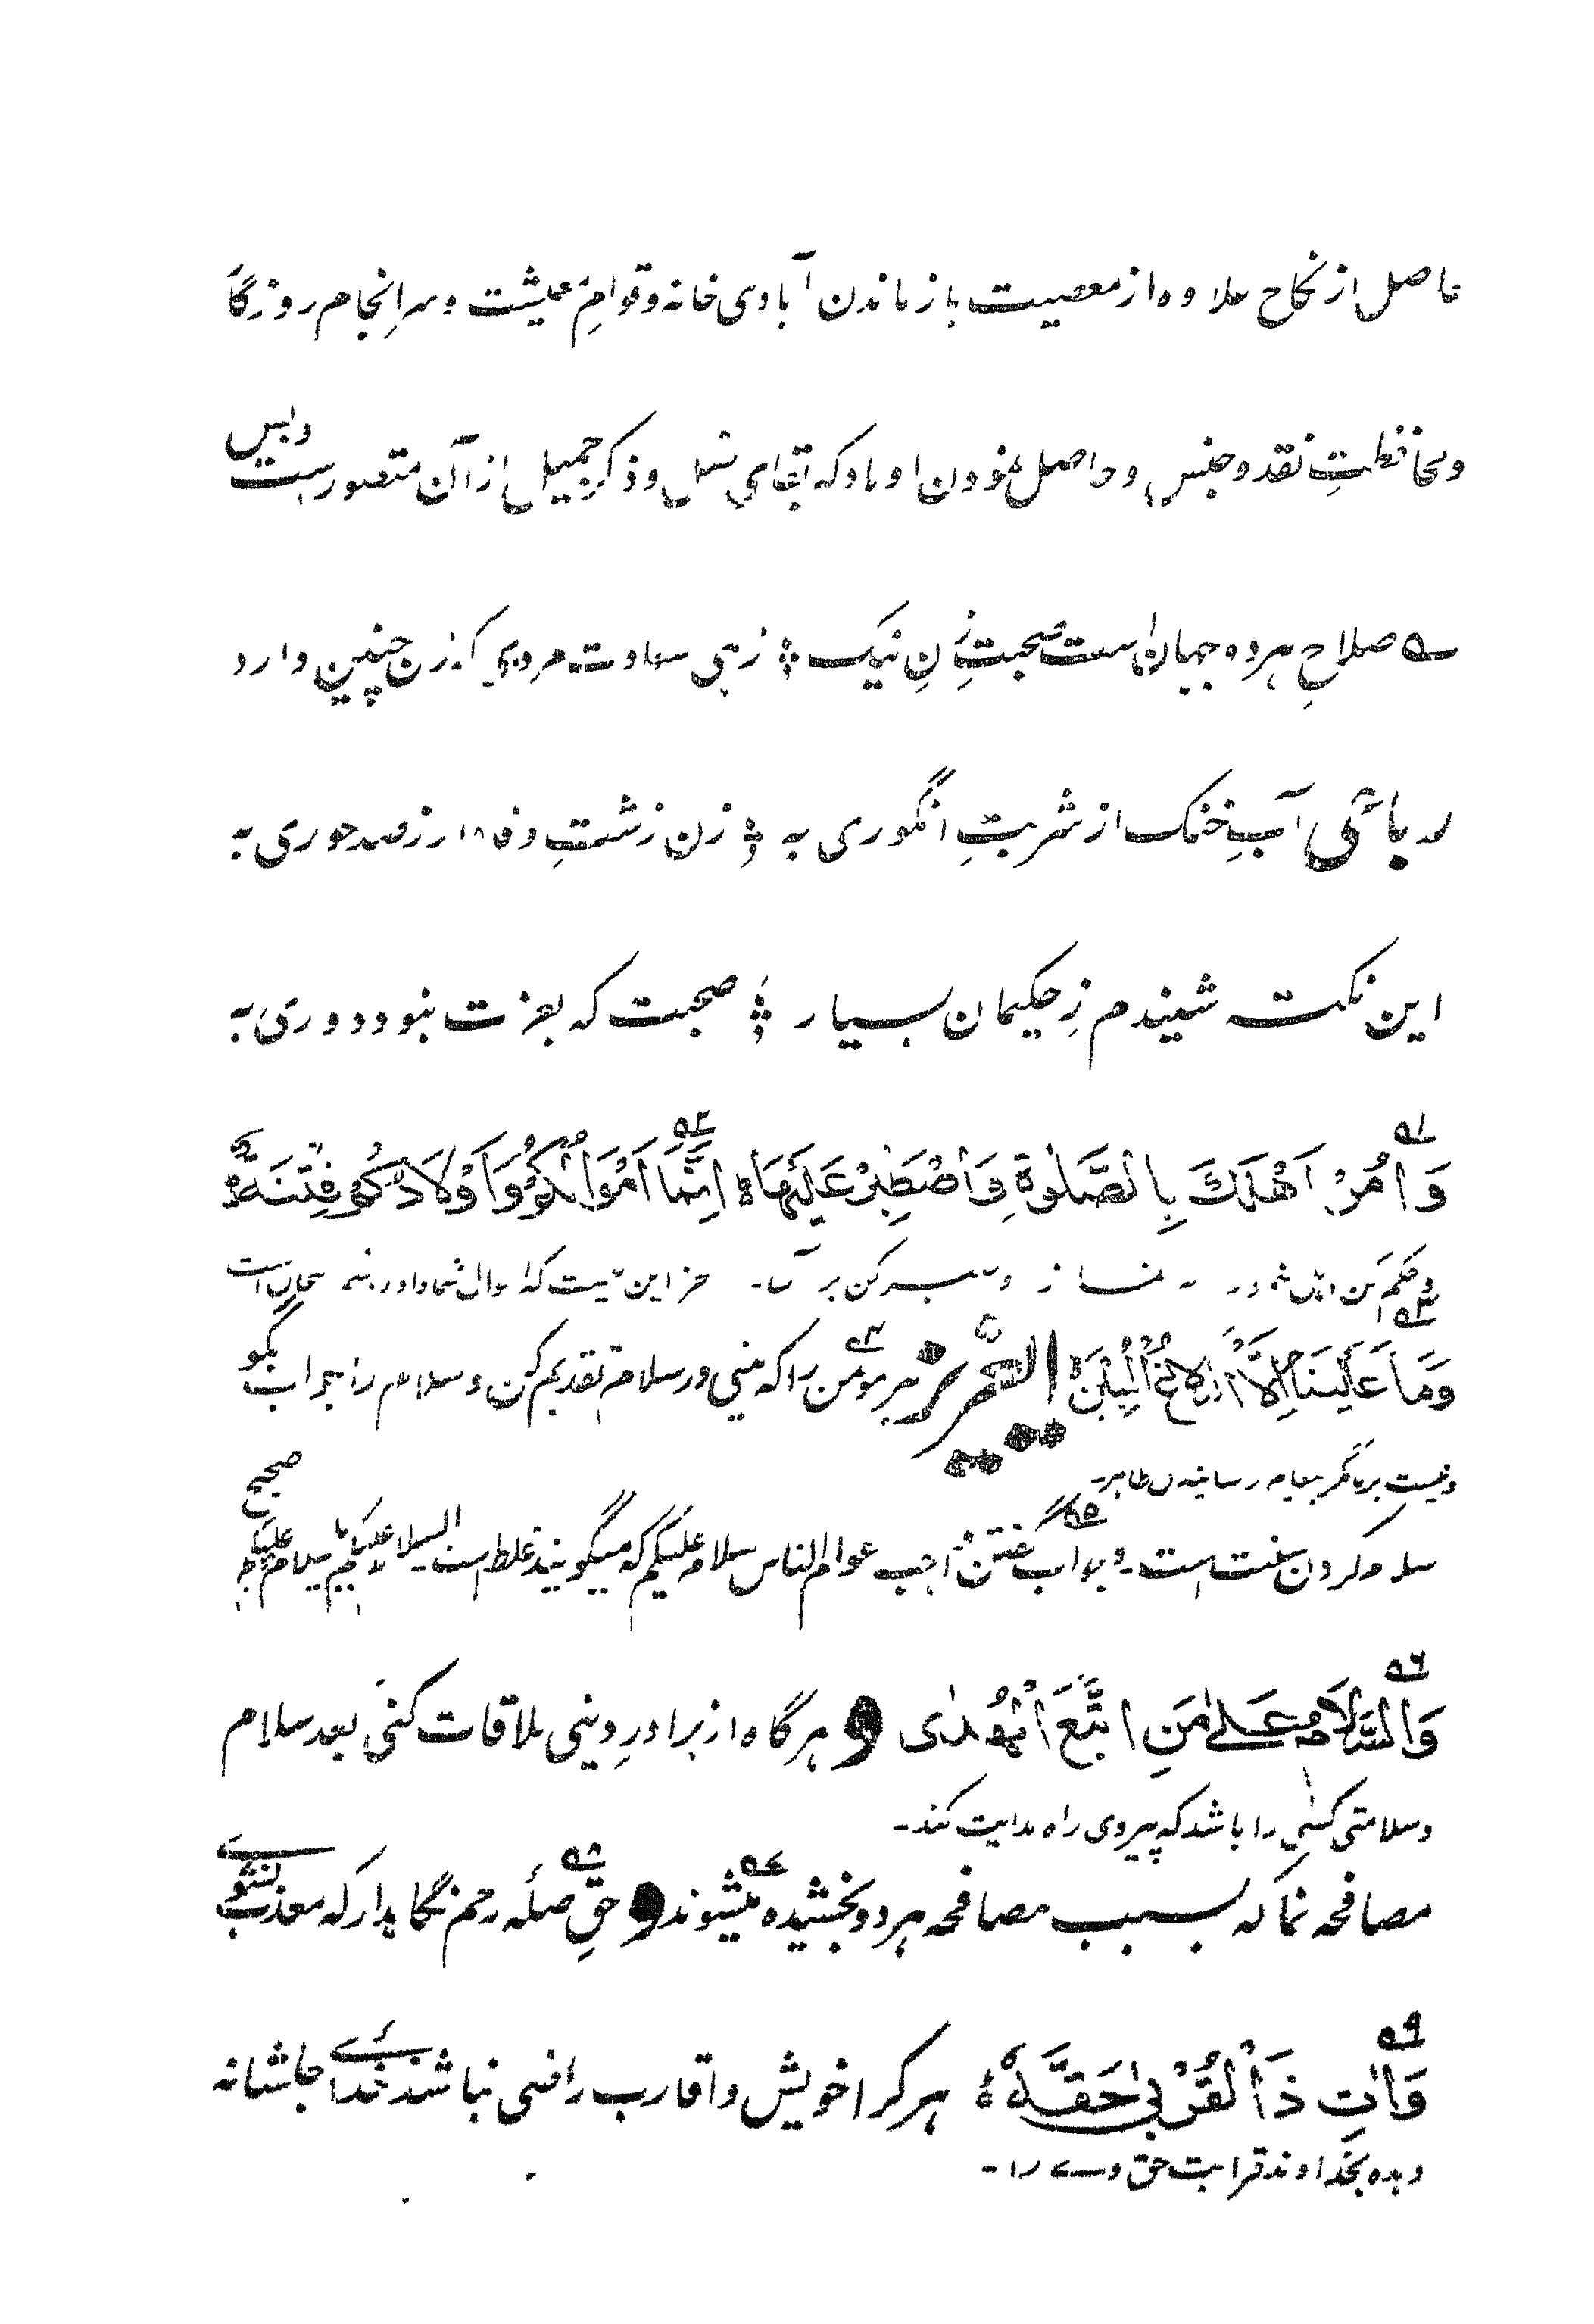 حاصل از نکاح علاوه از معصیت باز ماندن آبادی خانه و قوامِ معیشت و سر انجام روزگار
و محافظتِ نقد و جنس و حاصل نمودن اولاد که بقای نسل و ذکرِ جمیل از آن متصور است و بس
صلاحِ هر دو جهان است صحبتِ زنِ نیک ؛ زهی سعادت مردی که زن چنین دارد
رباعی آبِ خنک از شربتِ انگوری به ؛ زن زشتِ وفادار ز صد حوری به
این نکته شنیدم زِ حکیمان بسیار ؛ صحبت که بعزت نبود دوری به
۵۱ ۵۲
وَأْمُرْ اَهْلَكَ بِالصَّلٰوةِ وَاصْطَبِرْ عَلَيْهَا ه اِنَّمَا اَمْوَالُكُمْ وَاَوْلَادُكُمْ فِتْنَةٌ ه
و حکم کن نماز و کن بر آن۔ جز این نیست که اموال شما و اولاد است
۵۳ ۵۴
وَمَا عَلَيْنَا اِلَّا الْبَلَاغُ الْمُبِيْنُ هر مومن را که بینی در سلام تقدیم کن و سلام را جواب بگو
و نیست بر ما مگر پیغام رسانیدن ظاهر۔
۵۵
سلام کردن سنت است۔ و جواب گفتن واجب عوام الناس سلام علیکم که میگویند غلط است۔ السلام علیکم یا سلام علیکم صحیح
۵۶
وَالسَّلَامُ عَلٰى مَنِ اتَّبَعَ الْهُدٰى و هرگاه از برادرِ دینی ملاقات کنی بعد سلام
و سلامتی کسی را باشد که پیروی راه هدایت کند۔
۵۷ ۵۸
مصافحه نما که بسبب مصافحه هر دو بخشیده میشوند و حقِ صله رحم نگاهدار که معذب نشوی
۵۹
وَاٰتِ ذَا الْقُرْبٰى حَقَّهٗ هر کرا خویش و اقارب راضی نباشند خدائے جلشانه
و بده بخداوند قرابت حق وے را۔